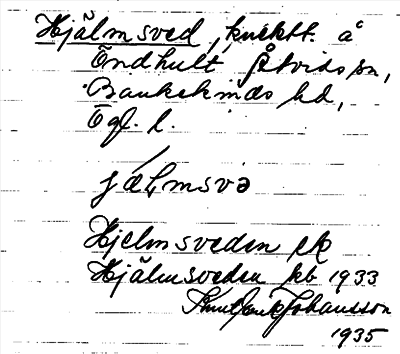 Hjälmsved, knektt. å
Öndhult Åtvids sn,
Bankekinds hd,
Ögl. l.
jälmsvə
Hjelmsveden ek
Hjälmsveden kb 1933
Knut Johansson
1935